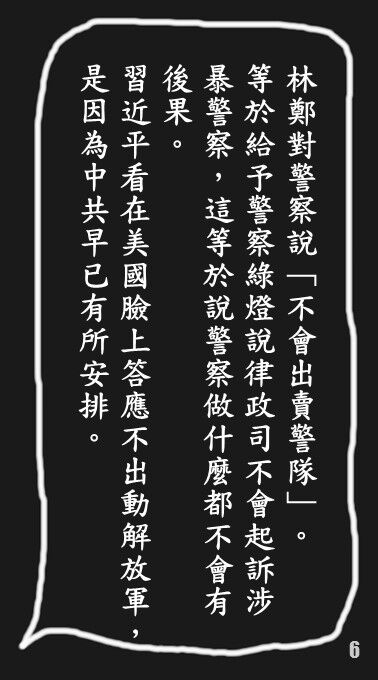 林鄭對警察說「不會出賣警隊」。
等於給予警察綠燈說律政司不會起訴涉
暴警察，這等於說警察做什麼都不會有
後果。
習近平看在美國臉上答應不出動解放軍，
是因為中共早已有所安排。
6